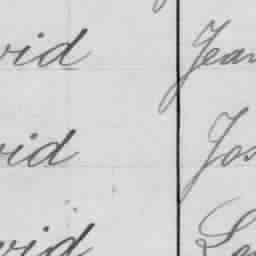 vid Jean
vid Jos
vid Le